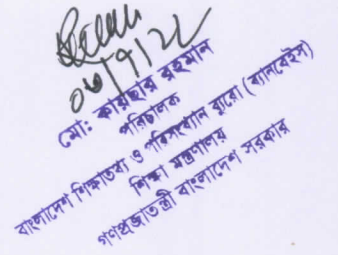 ০৬/৭/২২
মো: কায়ছার রহমান
পরিচালক
বাংলাদেশ শিক্ষাতথ্য ও পরিসংখ্যান ব্যুরো (ব্যানবেইস)
শিক্ষা মন্ত্রণালয়
গণপ্রজাতন্ত্রী বাংলাদেশ সরকার